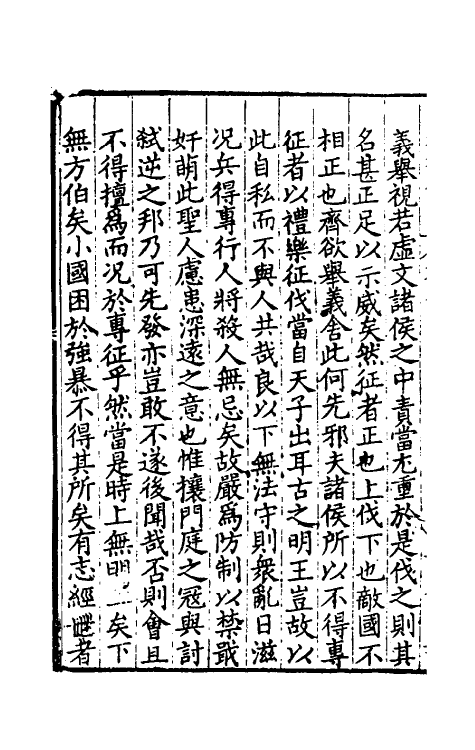 義舉視若虛文諸侯之中責當尤重於是伐之則其
名甚正足以示威矣然征者正也上伐下也敵國不
相正也齊欲舉義舍此何先邪夫諸侯所以不得專
征者以禮樂征伐當自天子出耳古之明王豈故以
此自私而不與人共哉良以下無法守則衆亂日滋
况兵得專行人將殺人無忌矣故嚴爲防制以禁戢
奸萌此聖人慮患深遠之意也惟攘門庭之冦與討
弑逆之邦乃可先發亦豈敢不遂後聞哉否則會且
不得擅爲而况於專征乎然當是時上無明矣下
無方伯矣小國困於強暴不得其所矣有志經世者